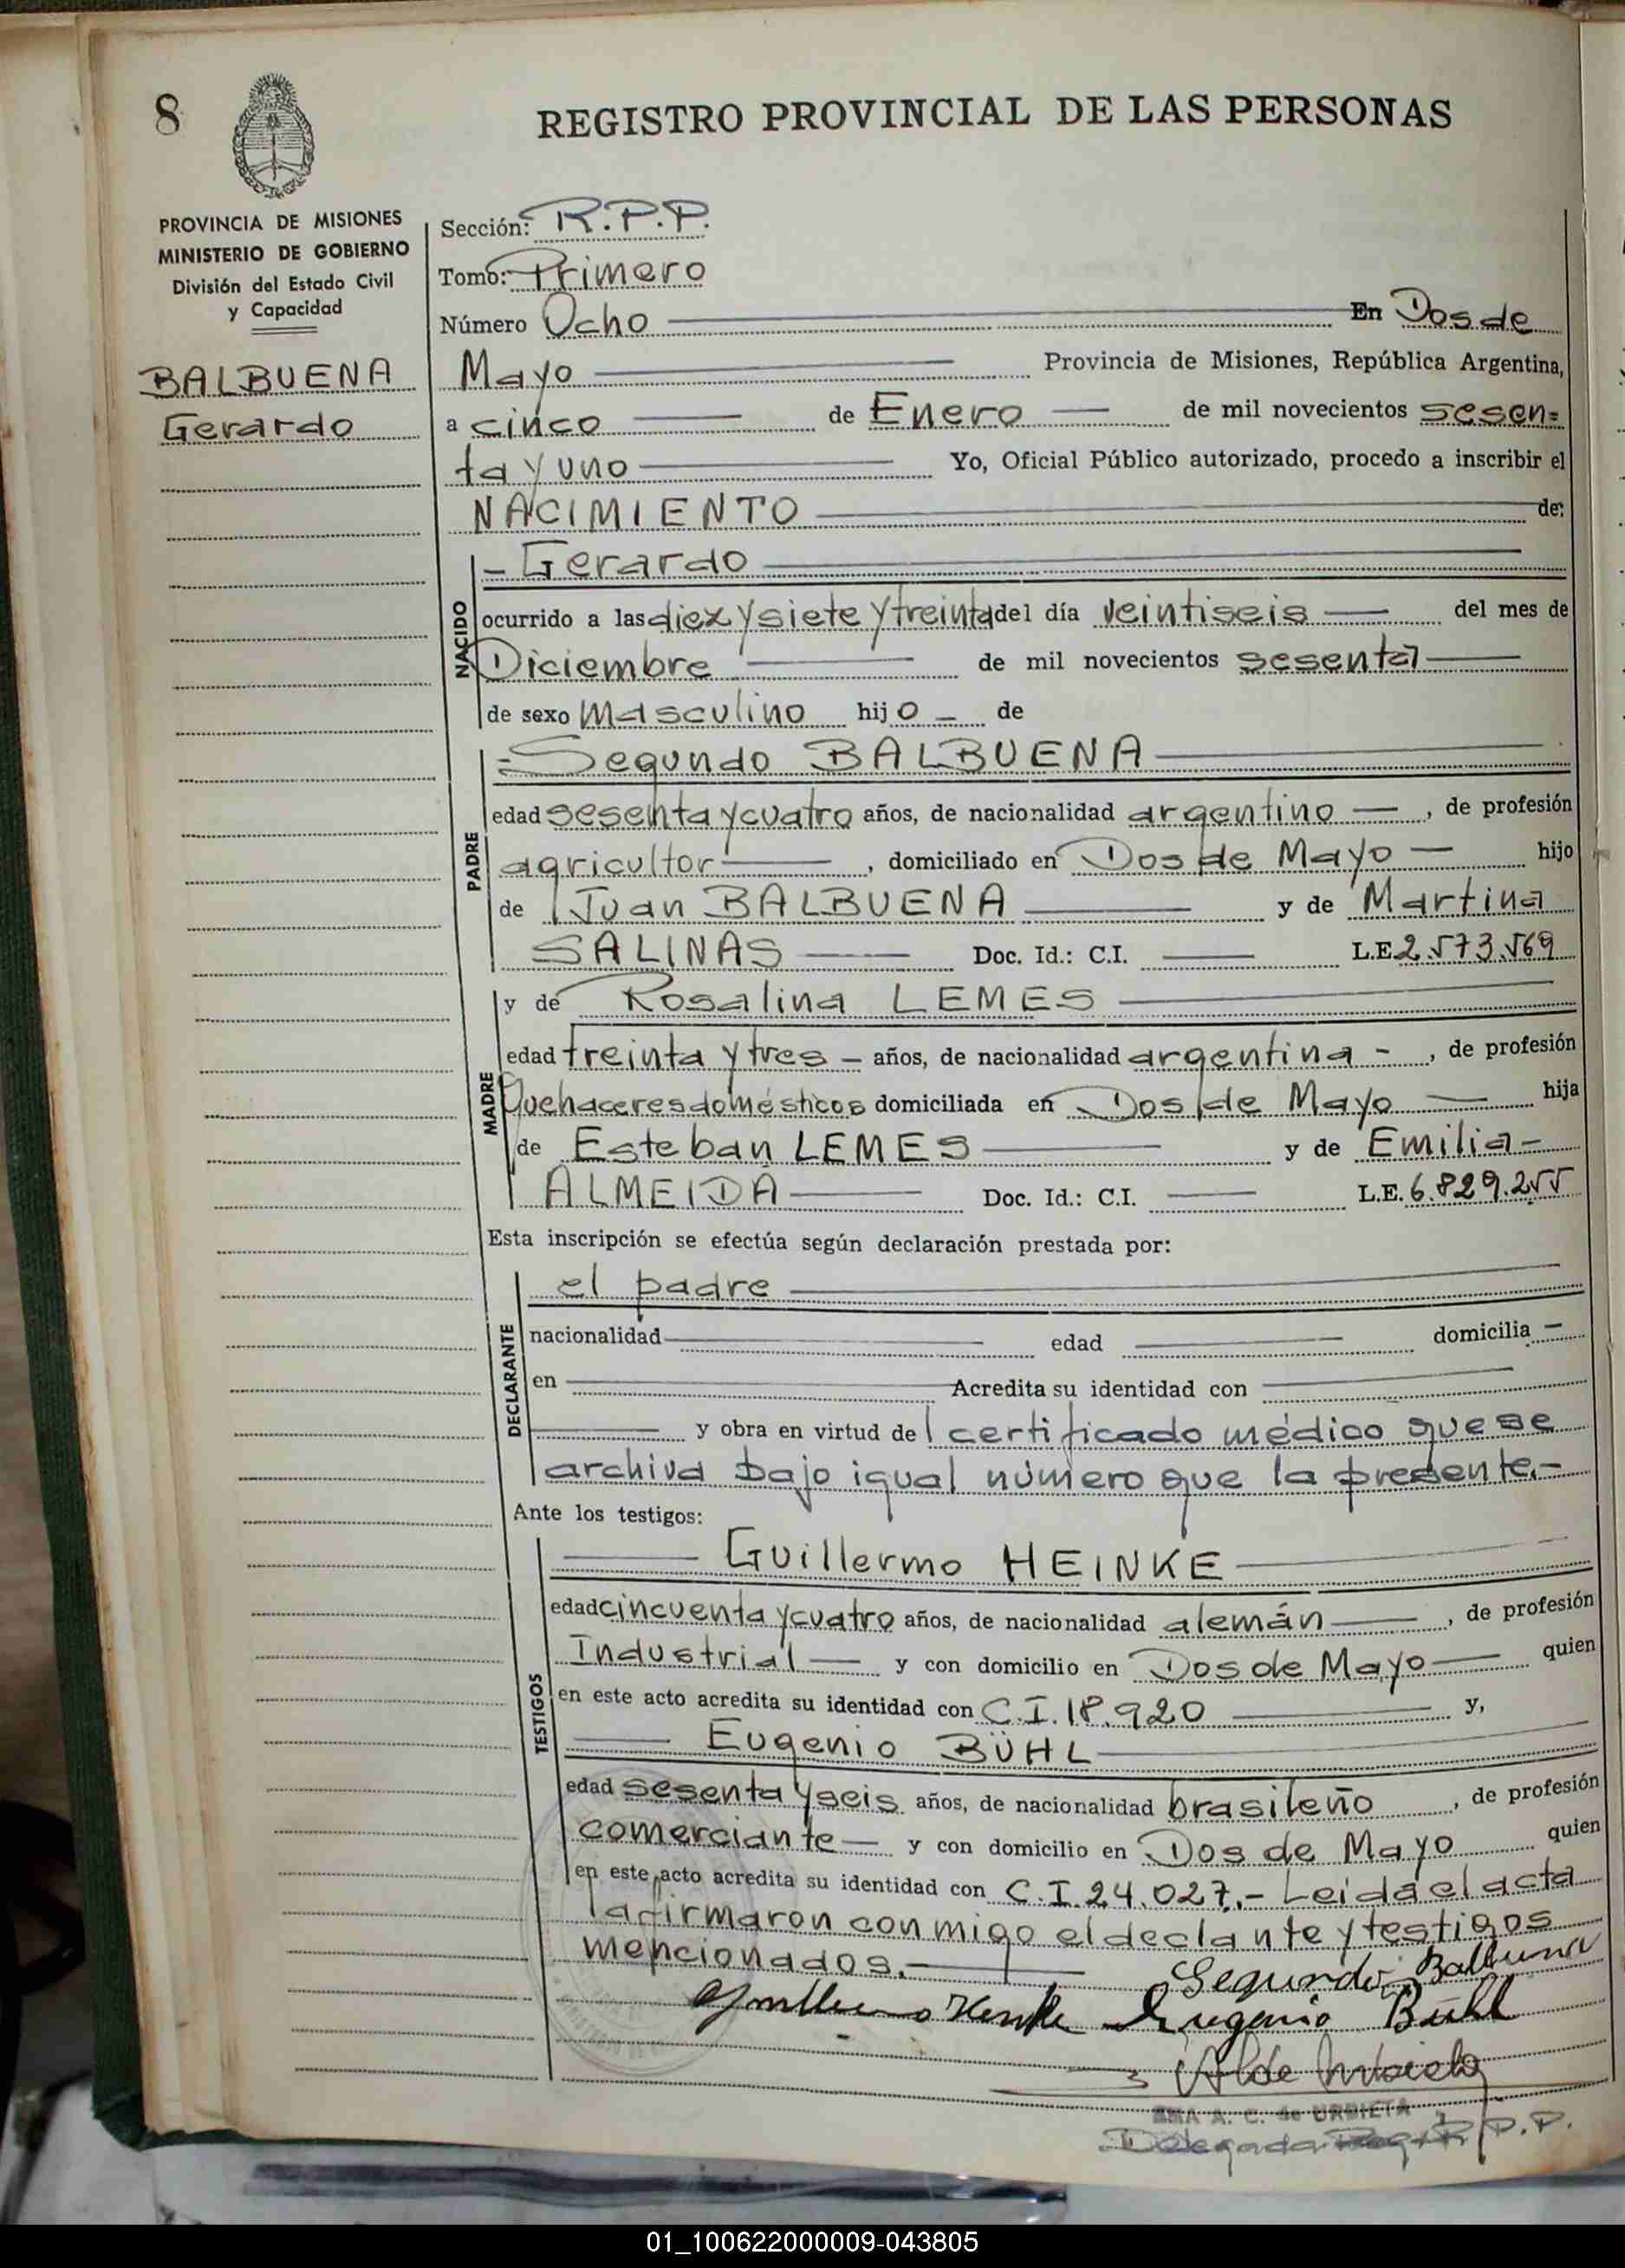 8
REGISTRO PROVINCIAL DE LAS PERSONAS
PROVINCIA DE MISIONES
MINISTERIO DE GOBIERNO
División del Estado Civil
y Capacidad
BALBUENA
Gerardo
Sección: R.P.P.
Tomo: Primero
Número Ocho En Dos de
Mayo Provincia de Misiones, República Argentina,
a cinco de Enero de mil novecientos sesen=
ta y uno Yo, Oficial Público autorizado, procedo a inscribir el
NACIMIENTO de:
NACIDO
- Gerardo
ocurrido a las diez y siete y treinta del día veintiseis del mes de
Diciembre de mil novecientos sesenta
de sexo Masculino hijo - de
PADRE
= Segundo BALBUENA
edad sesenta y cuatro años, de nacionalidad argentino , de profesión
agricultor , domiciliado en Dos de Mayo hijo
de Juan BALBUENA y de Martina
SALINAS Doc. Id.: C.I. L.E. 2.573.569
MADRE
y de Rosalina LEMES
edad treinta y tres - años, de nacionalidad argentina - , de profesión
Quehaceres domésticos domiciliada en Dos de Mayo hija
de Esteban LEMES y de Emilia -
ALMEIDA Doc. Id.: C.I. L.E. 6.829.255
Esta inscripción se efectúa según declaración prestada por:
DECLARANTE
el padre
nacionalidad edad domicilia
en Acredita su identidad con
y obra en virtud de certificado médico que se
archiva bajo igual número que la presente.-
Ante los testigos:
TESTIGOS
Guillermo HEINKE
edad cincuenta y cuatro años, de nacionalidad alemán , de profesión
Industrial y con domicilio en Dos de Mayo quien
en este acto acredita su identidad con C.I. 18.920 y,
Eugenio BÜHL
edad sesenta y seis años, de nacionalidad brasileño , de profesión
comerciante y con domicilio en Dos de Mayo quien
en este acto acredita su identidad con C.I. 24.027.- Leida el acta
la firmaron conmigo el declante y testigos
mencionados.-
Segundo Balbuena
Eugenio Bühl
A. C. de URBIETA
Delegada R.P.P.
01_100622000009-043805